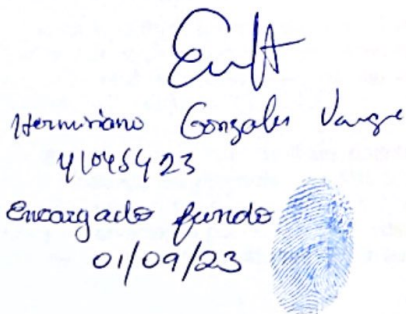 Hermiriano Gonzales Vargas
41045423
Encargado fundo
01/09/23